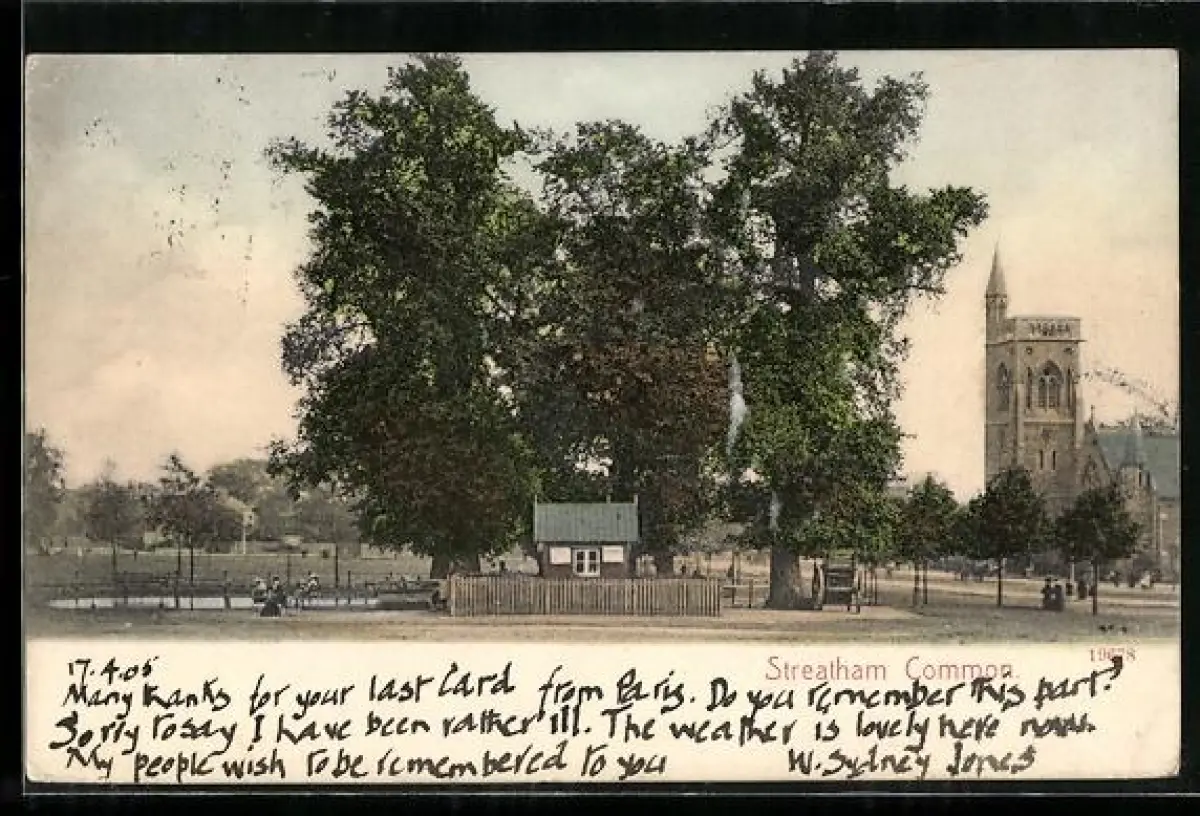 Streatham Common.
19678
17.4.05
Many thanks for your last Card from Paris. Do you remember this part?
Sorry to say I have been rather ill. The weather is lovely here now.
My people wish to be remembered to you W. Sydney Jones